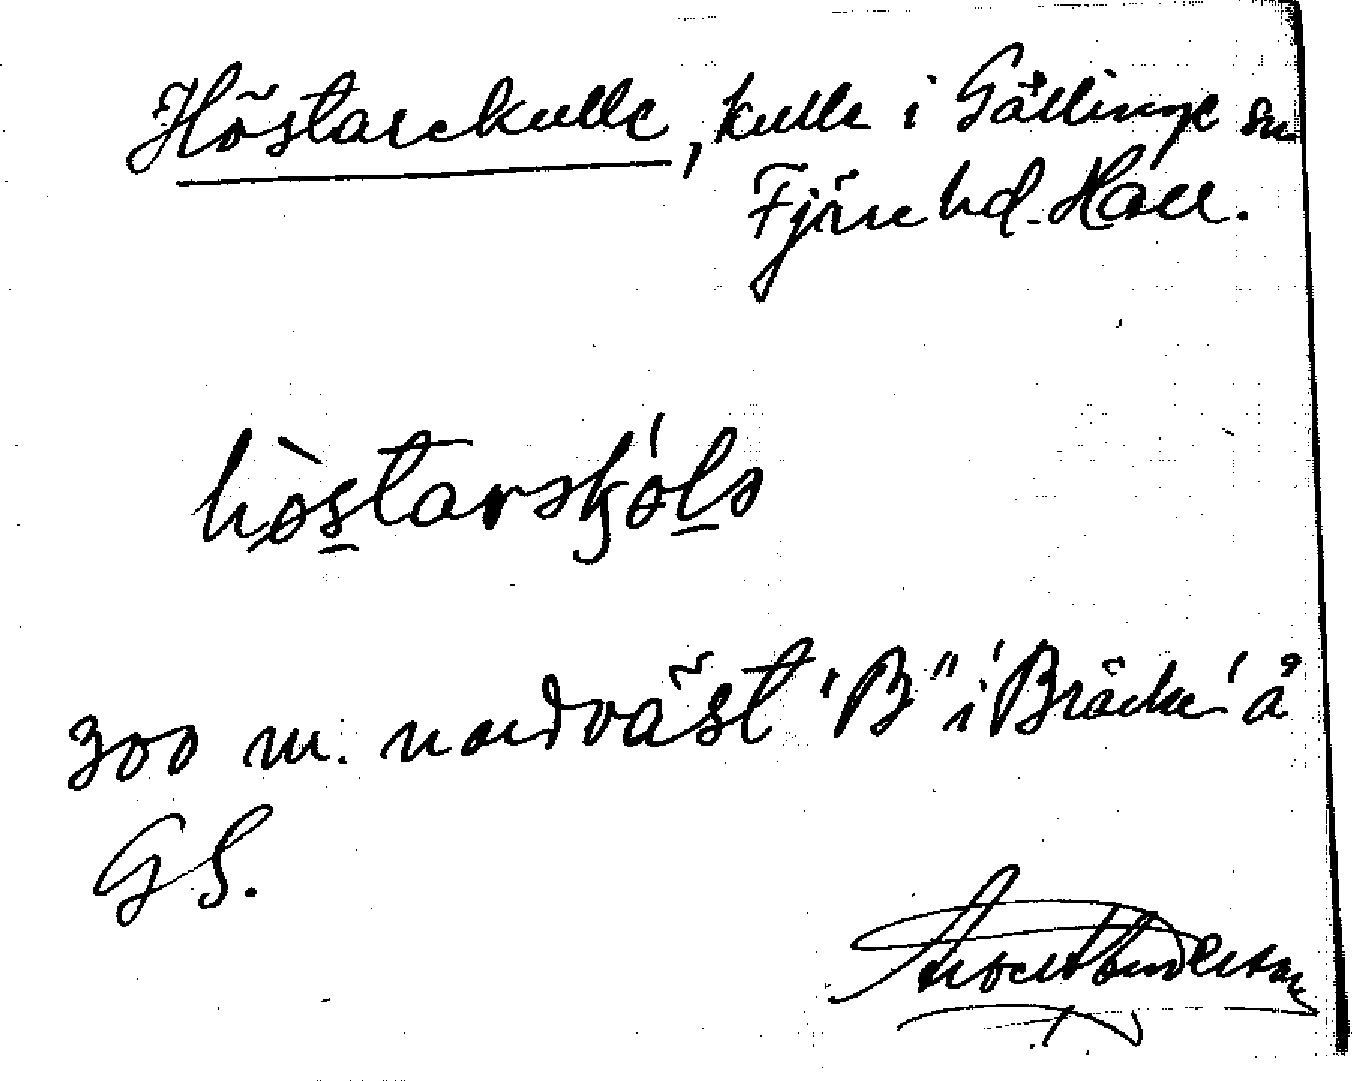 Höstarekulle, kulle i Gällinge sn
Fjäre hd. Hall.
300 m. nordväst "B" i 'Bräcke' å
GS.